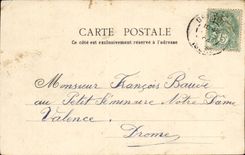 CARTE POSTALE
Ce côté est exclusivement réservé à l'adresse
Monsieur François Baude
au Petit Séminaire Notre Dame
Valence.
Drome